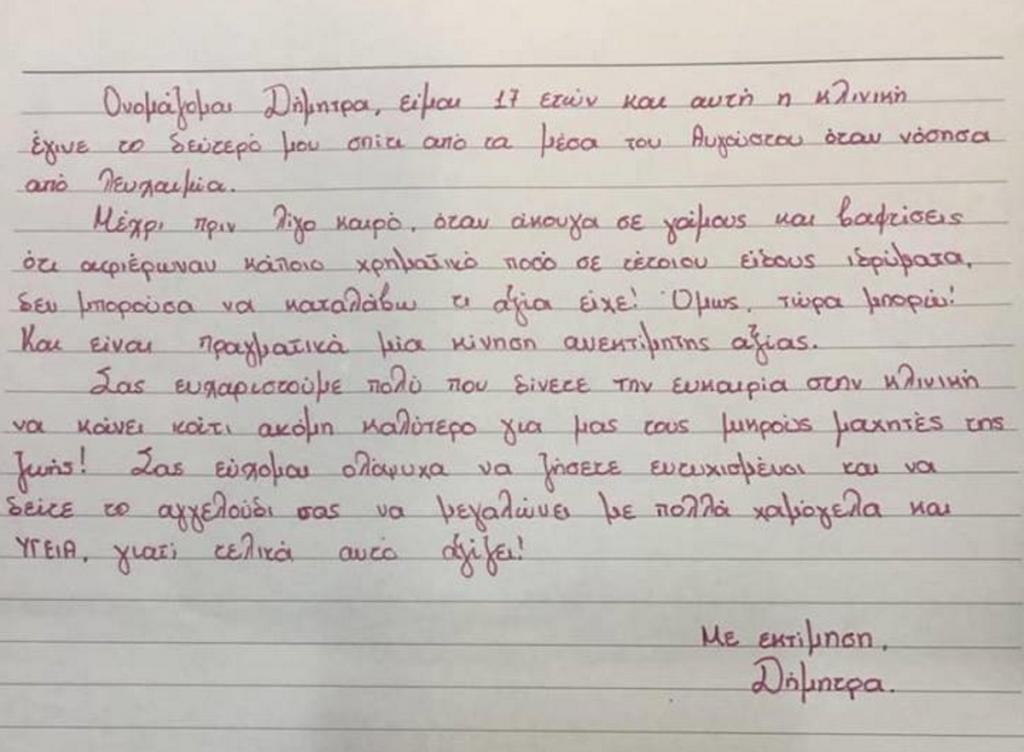 Ονομάζομαι Δήμητρα, είμαι 17 ετών και αυτή η κλινική
έγινε το δεύτερό μου σπίτι από τα μέσα του Αυγούστου όταν νόσησα
από λευχαιμία.
Μέχρι πριν λίγο καιρό, όταν άκουγα σε γάμους και βαφτίσεις
ότι αφιέρωναν κάποιο χρηματικό ποσό σε τέτοιου είδους ιδρύματα,
δεν μπορούσα να καταλάβω τι αξία είχε! Όμως, τώρα μπορώ!
Και είναι πραγματικά μία κίνηση ανεκτίμητης αξίας.
Σας ευχαριστούμε πολύ που δίνετε την ευκαιρία στην κλινική
να κάνει κάτι ακόμη καλύτερο για μας τους μικρούς μαχητές της
ζωής! Σας εύχομαι ολόψυχα να ζήσετε ευτυχισμένοι και να
δείτε το αγγελούδι σας να μεγαλώνει με πολλά χαμόγελα και
ΥΓΕΙΑ, γιατί τελικά αυτό αξίζει!
Με εκτίμηση,
Δήμητρα.